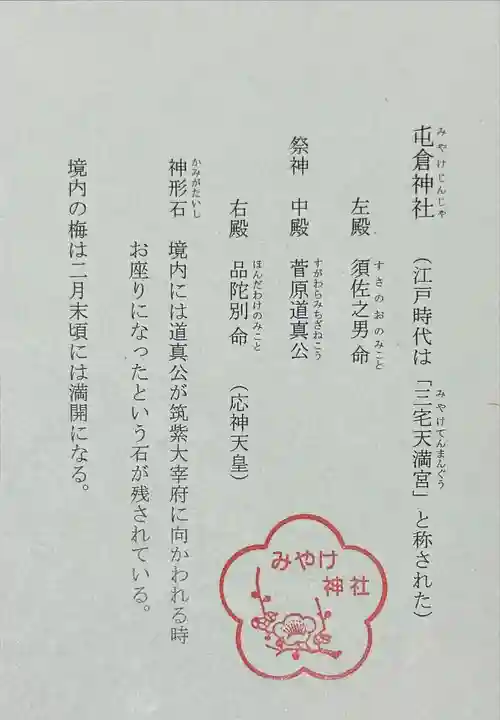 屯倉神社（江戸時代は「三宅天満宮」と称された）
みやけじんじゃ
みやけてんまんぐう
左殿 須佐之男命
すさのおのみこと
祭神 中殿 菅原道真公
すがわらみちざねこう
右殿 品陀別命（応神天皇）
ほんだわけのみこと
神形石 境内には道真公が筑紫大宰府に向かわれる時
かみがたいし
お座りになったという石が残されている。
境内の梅は二月末頃には満開になる。
みやけ
神社